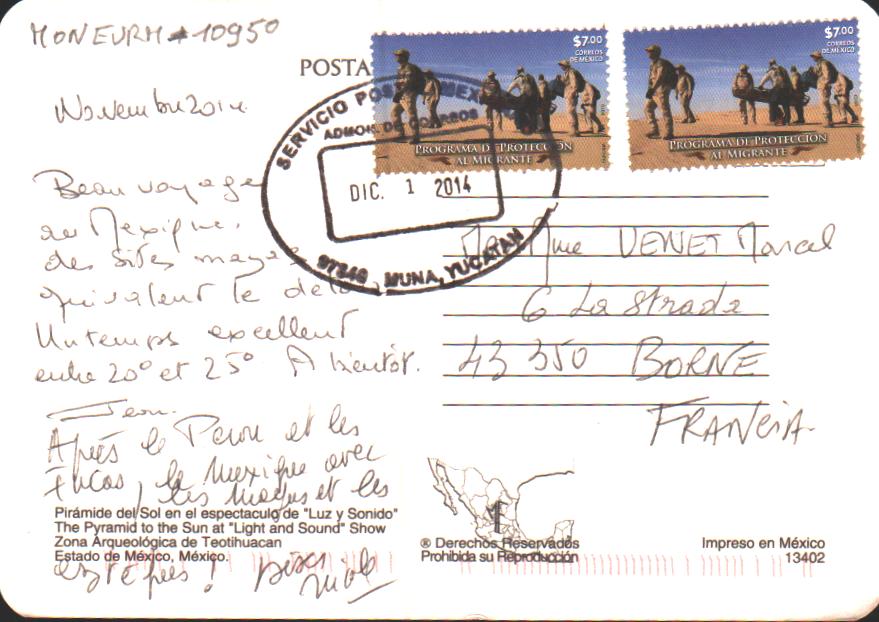 MONEURM *10950
POSTA
Novembre 2014
Beau voyage
au Mexique.
des sites mayas
équivalent le
Un temps excellent
entre 20° et 25° A bientôt.
Jean.
Après le Perou et les
Incas, le Mexique avec
les mayas et les
aztèques ! Bises
Pirámide del Sol en el espectaculo de "Luz y Sonido"
The Pyramid to the Sun at "Light and Sound" Show
Zona Arqueológica de Teotihuacan
Estado de México, México.
$7.00
CORREOS
DE MEXICO
PROGRAMA DE PROTECCIÓN
AL MIGRANTE
$7.00
CORREOS
DE MEXICO
PROGRAMA DE PROTECCIÓN
AL MIGRANTE
SERVICIO POSTAL MEX
ADMON. DE CORREOS
DIC. 1 2014
97346 MUNA, YUCATAN
Mme VENET Marcel
6 La Strada
43 350 BORNE
FRANCIA.
® Derechos Reservados
Prohibida su Reproducción
Impreso en México
13402